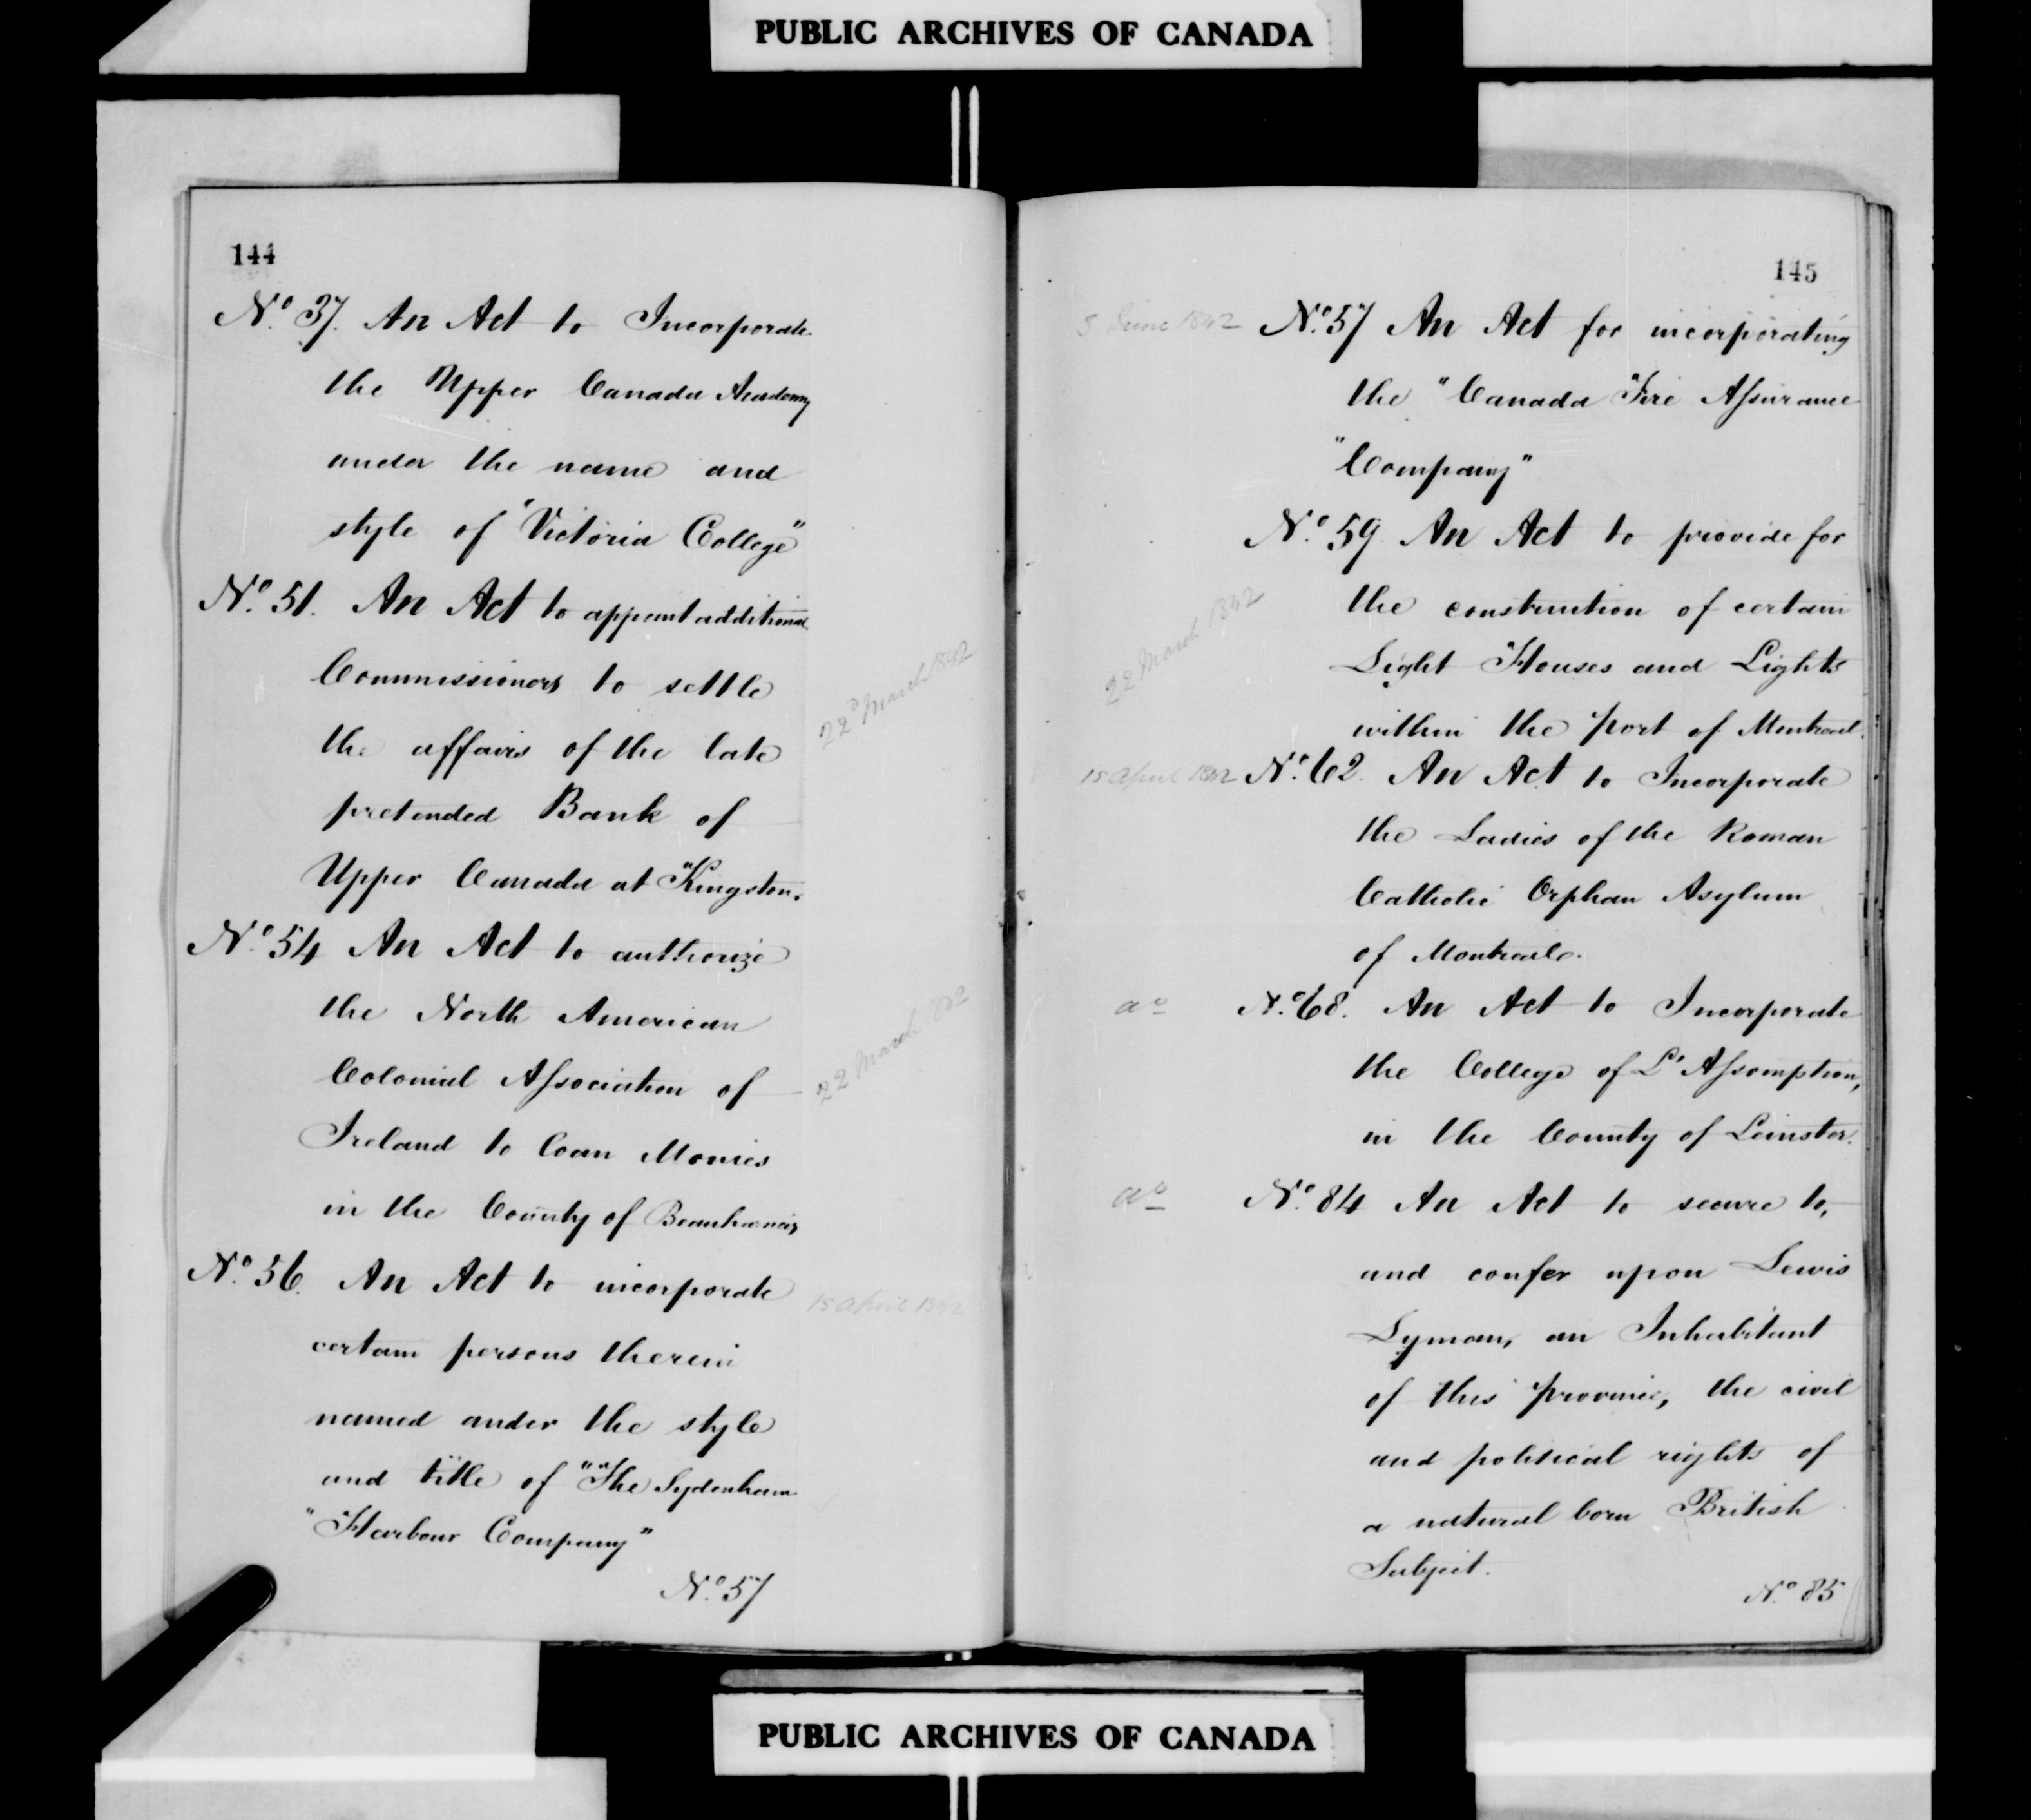 PUBLIC ARCHIVES OF CANADA
144
No. 37. An Act to Incorporate
the Upper Canada Academy
under the name and
style of "Victoria College"
No. 51. An Act to appoint additional
Commissioners to settle
the affairs of the late
pretended Bank of
Upper Canada at Kingston.
22d March 1842
No. 54 An Act to authorize
the North American
Colonial Association of
Ireland to loan Monies
in the County of Beauharnois
22 March 1842
No. 56. An Act to incorporate
15 April 1842
certain persons therein
named under the style
and title of "The Sydenham
"Harbour Company"
No. 57
145
3 June 1842
No. 57 An Act for incorporating
the "Canada Fire Assurance
"Company"
No. 59 An Act to provide for
the construction of certain
Light Houses and Lights
within the port of Montreal.
22 March 1842
15 April 1842
No. 62. An Act to Incorporate
the Ladies of the Roman
Catholic Orphan Asylum
of Montreal.
do
No. 68. An Act to Incorporate
the College of L'Assomption,
in the County of Leinster.
do
No. 84 An Act to secure to,
and confer upon Lewis
Lyman, an Inhabitant
of this province, the civil
and political rights of
a natural born British
Subject.
No. 85
PUBLIC ARCHIVES OF CANADA